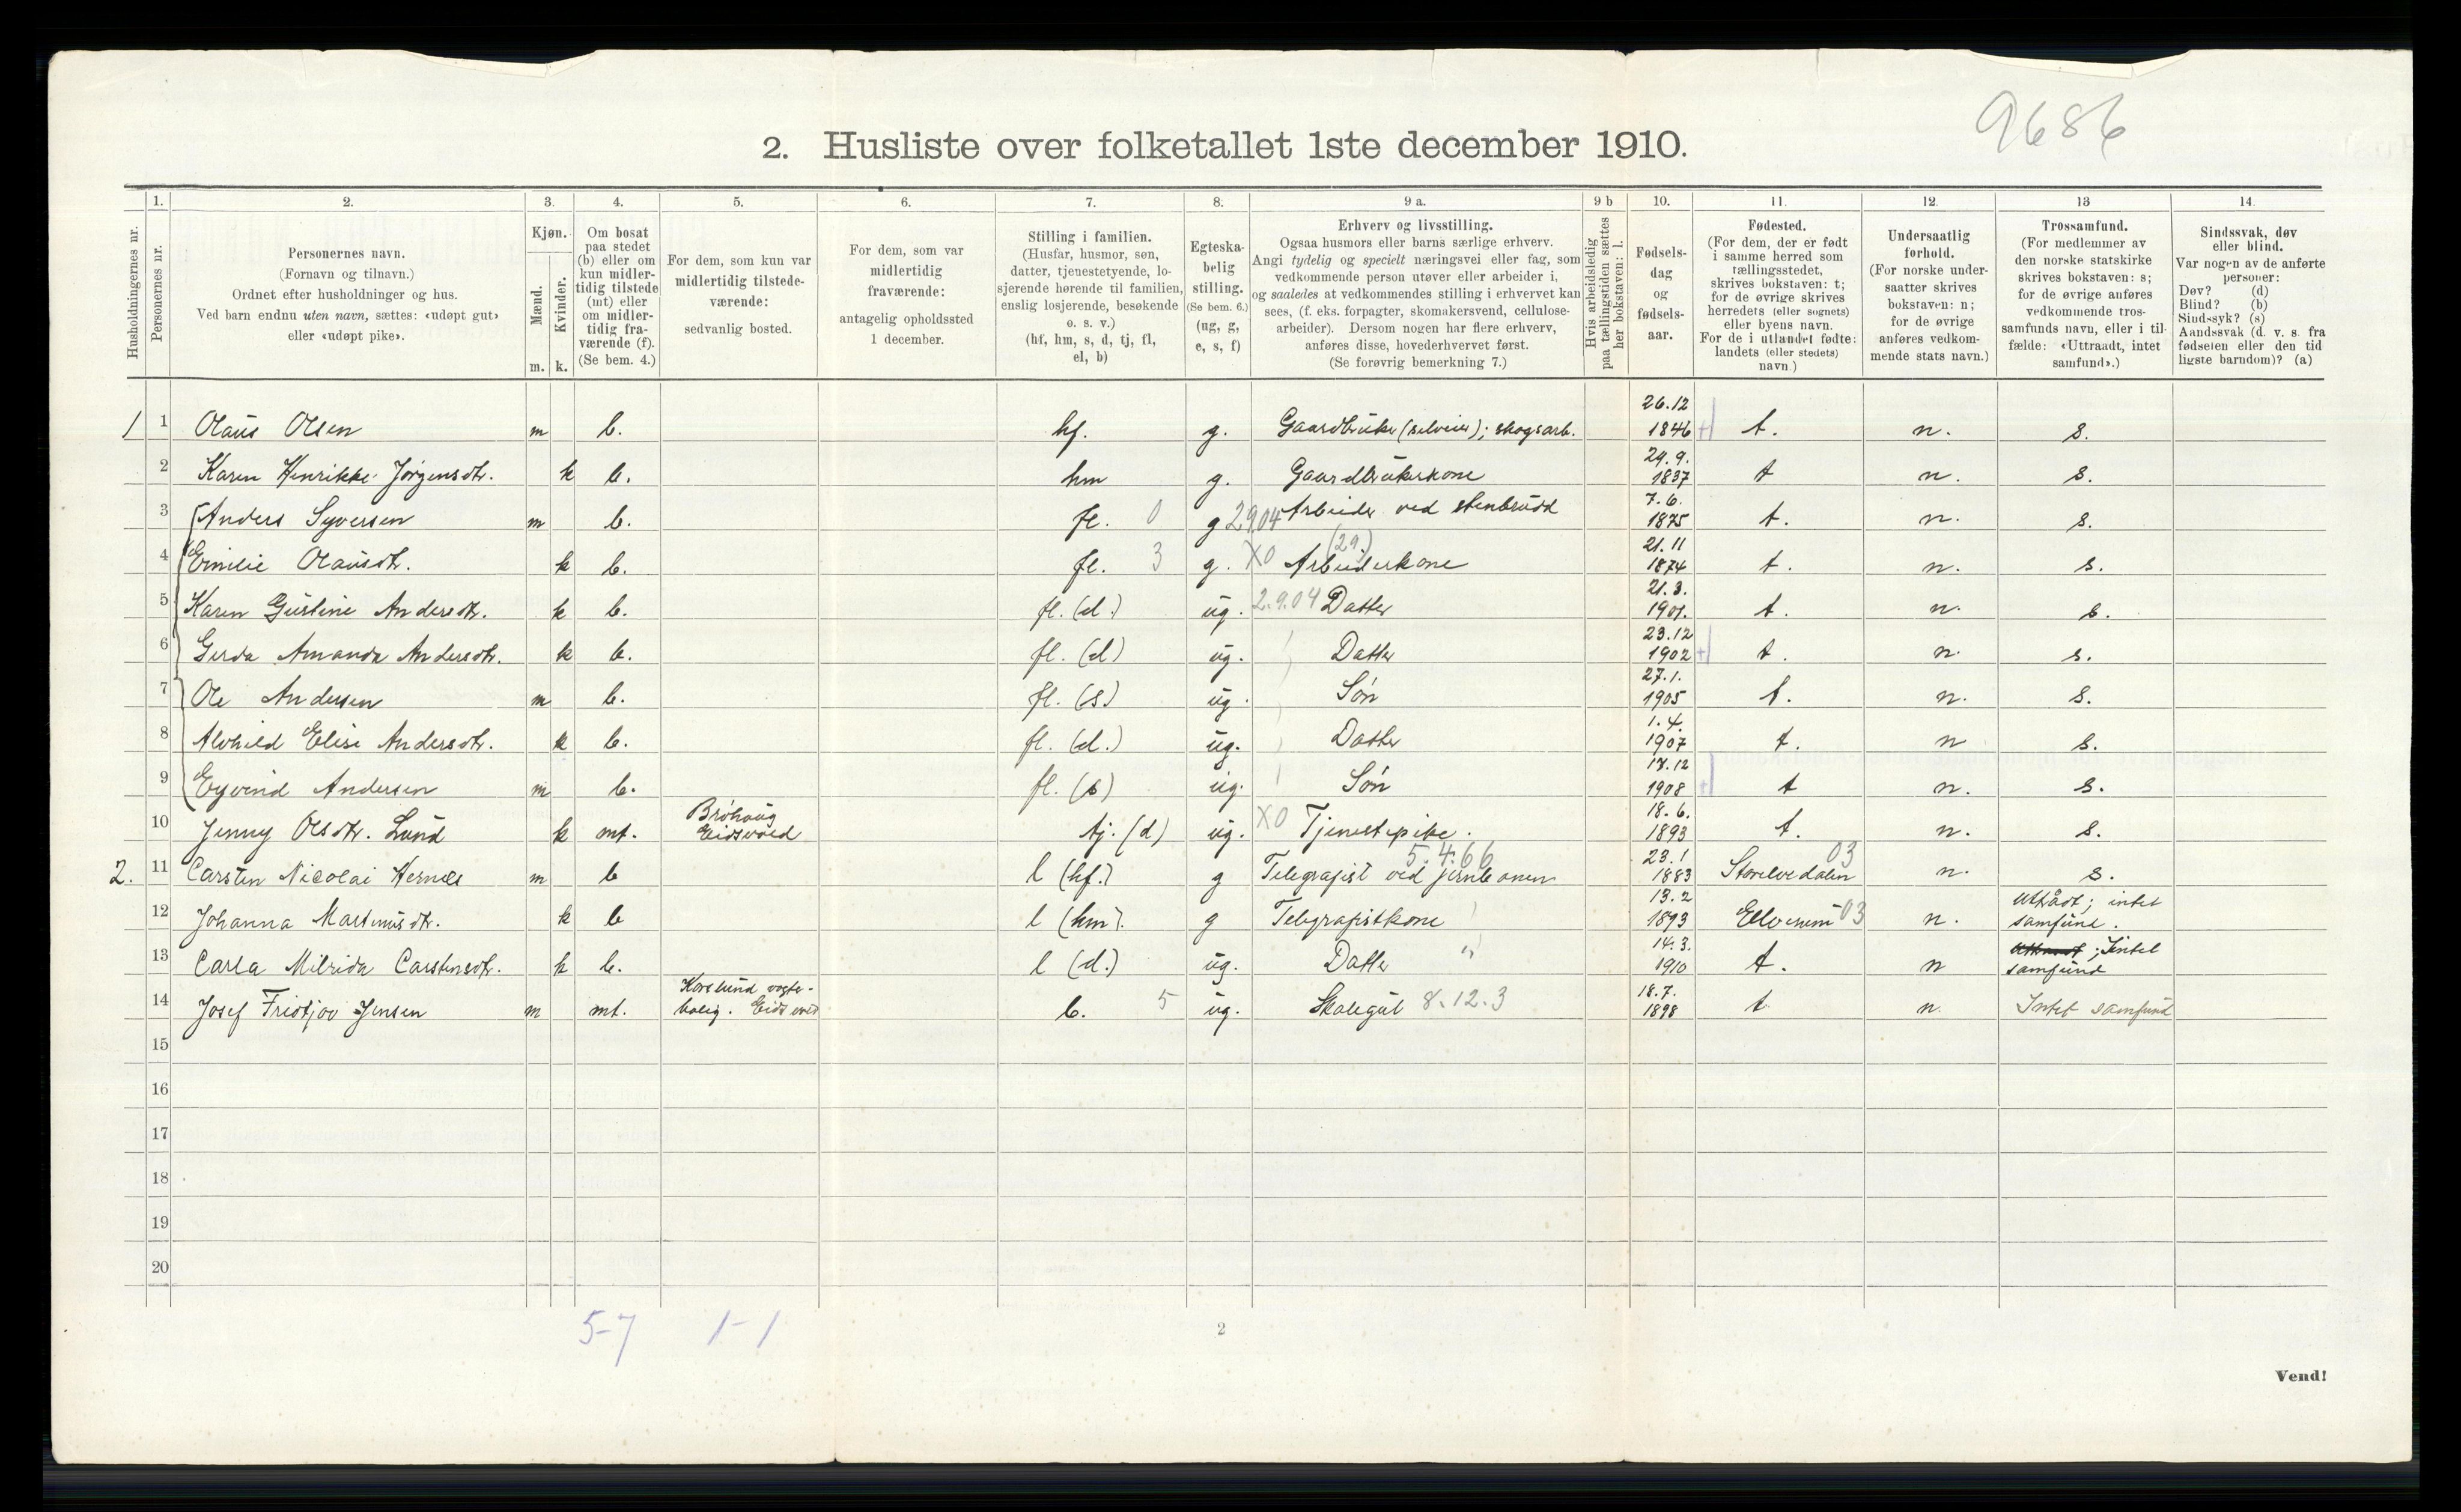 9686
2. Husliste over folketallet 1ste december 1910.
Husholdningernes nr.
1.
Personernes nr.
2.
Personernes navn.
(Fornavn og tilnavn.)
Ordnet efter husholdninger og hus.
Ved barn endnu uten navn, sættes: «udøpt gut»
eller «udøpt pike».
3.
Kjøn.
Mænd.
Kvinder.
m. k.
4.
Om bosat
paa stedet
(b) eller om
kun midler-
tidig tilstede
(mt) eller
om midler-
tidig fra-
værende (f).
(Se bem. 4.)
5.
For dem, som kun var
midlertidig tilstede-
værende:
sedvanlig bosted.
6.
For dem, som var
midlertidig
fraværende:
antagelig opholdssted
1 december.
7.
Stilling i familien.
(Husfar, husmor, søn,
datter, tjenestetyende, lo-
sjerende hørende til familien,
enslig losjerende, besøkende
o. s. v.)
(hf, hm, s, d, tj, fl,
el, b)
8.
Egteska-
belig
stilling.
(Se bem. 6.)
(ug, g,
e, s, f)
9 a.
Erhverv og livsstilling.
Ogsaa husmors eller barns særlige erhverv.
Angi tydelig og specielt næringsvei eller fag, som
vedkommende person utøver eller arbeider i,
og saaledes at vedkommendes stilling i erhvervet kan
sees, (f. eks. forpagter, skomakersvend, cellulose-
arbeider). Dersom nogen har flere erhverv,
anføres disse, hovederhvervet først.
(Se forøvrig bemerkning 7.)
9 b
Hvis arbeidsledig
paa tællingstiden sættes
her bokstaven: l.
10.
Fødsels-
dag
og
fødsels-
aar.
11.
Fødested.
(For dem, der er født
i samme herred som
tællingsstedet,
skrives bokstaven: t;
for de øvrige skrives
herredets (eller sognets)
eller byens navn.
For de i utlandet fødte:
landets (eller stedets)
navn.)
12.
Undersaatlig
forhold.
(For norske under-
saatter skrives
bokstaven: n;
for de øvrige
anføres vedkom-
mende stats navn.)
13
Trossamfund.
(For medlemmer av
den norske statskirke
skrives bokstaven: s;
for de øvrige anføres
vedkommende tros-
samfunds navn, eller i til-
fælde: «Uttraadt, intet
samfund».)
14.
Sindssvak, døv
eller blind.
Var nogen av de anførte
personer:
Døv? (d)
Blind? (b)
Sindssyk? (s)
Aandssvak (d. v. s. fra
fødselen eller den tid
ligste barndom)? (a)
1 1 Olaus Olsen m b. hf. g. Gaardbruker (selveier); skogsarb. 26.12 1846 t. n. s.
2 Karen Henrikke Jørgensdtr. k b. hm g. Gaardbrukerkone 29.9. 1837 t n. s.
3 Anders Syversen m b. fl. 0 g 2904 Arbeider ved stenbrudd 7.6. 1875 t. n. s.
4 Emilie Olausdtr. k b. fl. 3 g. X0 Arbeiderkone (29.) 21.11 1874 t. n. s.
5 Karen Gustine Andersdtr. k b. fl. (d.) ug. 2.9.04 Datter 21.3. 1901. t. n. s.
6 Gerda Amanda Andersdtr. k b. fl. (d) ug. Datter 23.12 1902 t. n. s.
7 Ole Andersen m b. fl. (s) ug. Søn 27.1. 1905 t. n. s.
8 Alvhild Elise Andersdtr. k b. fl. (d.) ug. Datter 1.4. 1907 t. n s.
9 Eyvind Andersen m b. fl. (s) ug. Søn 17.12 1908 t n. s.
10 Jenny Olsdtr. Lund k mt. Bröhaug Eidsvold tj. (d) ug. X0 Tjenestepike. 18.6. 1893 t. n. s.
2. 11 Carsten Nicolai Hernes m b l (hf.) g Telegrafist ved jernbanen 5.4.66 23.1 1883 Storelvedalen 03 n. s.
12 Johanna Martinusdtr. k b l (hm). g Telegrafistkone 13.2 1893 Elverum 03 n. Utrådt; intet samfund.
13 Carla Milrida Carstensdtr. k b. l (d.) ug. Datter " 14.3. 1910 t. n Uttraadt; Intet samfund
14 Josef Fridtjov Jensen m mt. Korslund vogter- bolig. Eidsvold b. 5 ug. Skolegut 8.12.3 18.7. 1898 t n. Intet samfund
15
16
17
18
19
20
5-7 1-1
2
Vend!